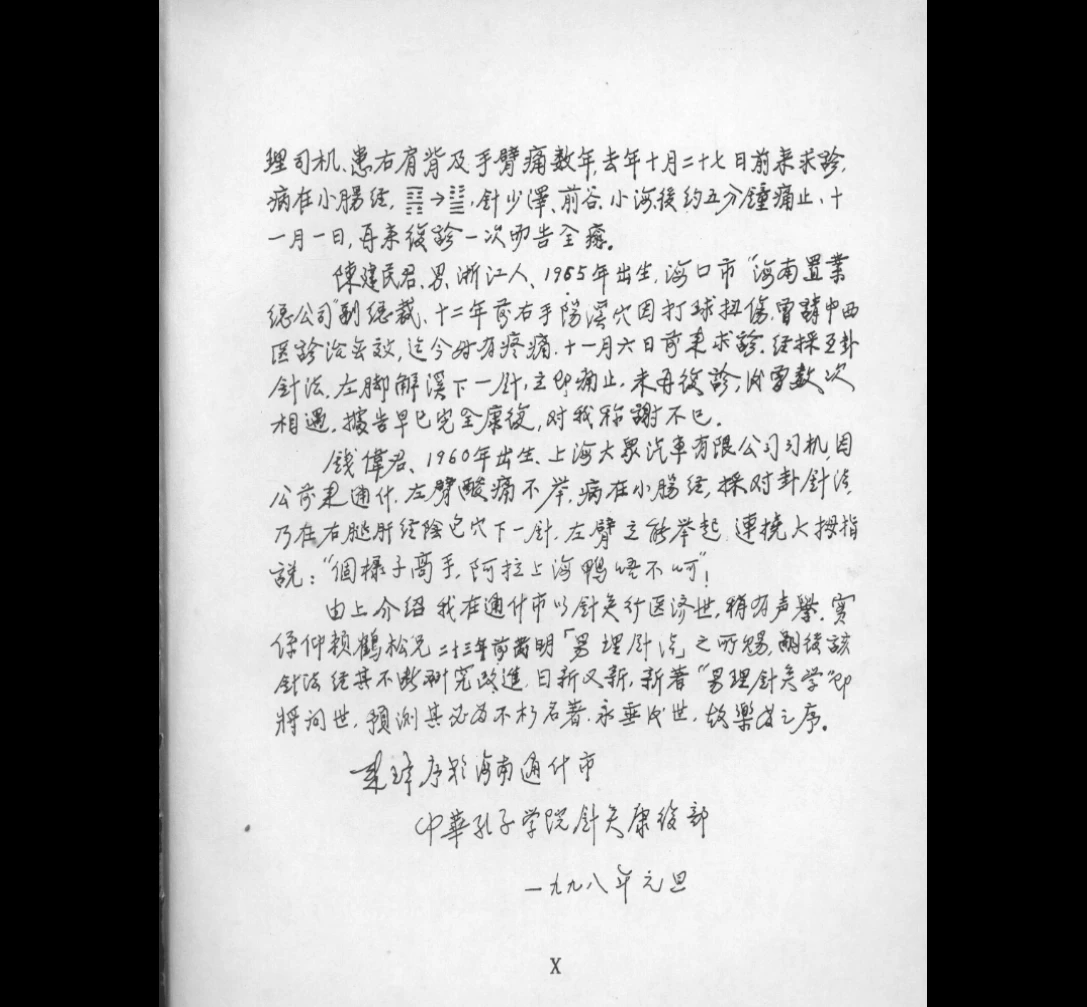 理司机、患右肩背及手臂痛数年,去年十月二十七日前来求診,
病在小腸经, → ,針少澤、前谷、小海後约五分鐘痛止、十
一月一日,再来復診一次即告全癒。
陳建民君、男、浙江人、1965年出生,海口市“海南置業
總公司”副總裁、十二年前右手陽溪穴因打球扭傷,曾請中西
医診治無效,迄今时有疼痛.十一月六日前来求診.经採互卦
針法,左脚解溪下一針,立即痛止.未再復診,後曾数次
相遇,據告早已完全康復,对我称謝不已.
錢偉君、1960年出生、上海大眾汽車有限公司司机,因
公前来通什.左臂酸痛不举,病在小腸经,採对卦針法,
乃在右腿肝经陰包穴下一針.左臂立能举起.連撓大拇指
説:“個樣子高手,阿拉上海鸭唔不呵”!
由上介绍我在通什市以針灸行医济世,稍有声譽.實
係仰賴鶴松兄二十三年前發明「易理針法」之所賜,嗣後該
針法经其不断研究改進.日新又新,新著“易理針灸学”即
將问世.預測其必為不朽名著.永垂後世.故樂為之序。
序於海南通什市
中華孔子学院針灸康復部
一九九八年元旦
X